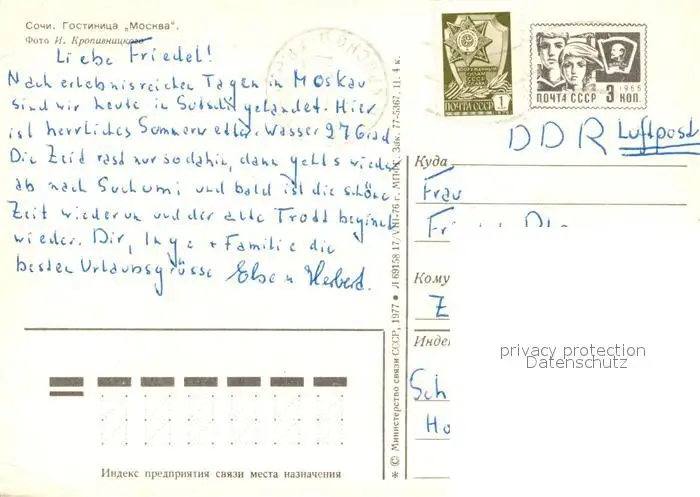 Сочи. Гостиница „Москва".
Фото И. Кропивницкого
Liebe Friedel!
Nach erlebnisreichen Tagen in Moskau
sind wir heute in Sotschi gelandet. Hier
ist herrliches Sommerwetter. Wasser 27 Grad.
Die Zeid rast nur so dahin, dann geht's wieder
ab nach Suchumi und bald ist die schöne
Zeit wiederum und der alte Trott beginnt
wieder. Dir, Inge + Familie die
besten Urlaubsgrüsse Herbert.
ПОЧТА СССР 1
ПОЧТА СССР 3 КОП.
1965
DDR Luftpost
Куда
Frau
Кому
Z
Инде
Sch
Ho
privacy protection
Datenschutz
* © Министерство связи СССР, 1977 ● Л 69158 17/VIII-76 г. Зак. 77-5367. Ц. 4 к.
Индекс предприятия связи места назначения